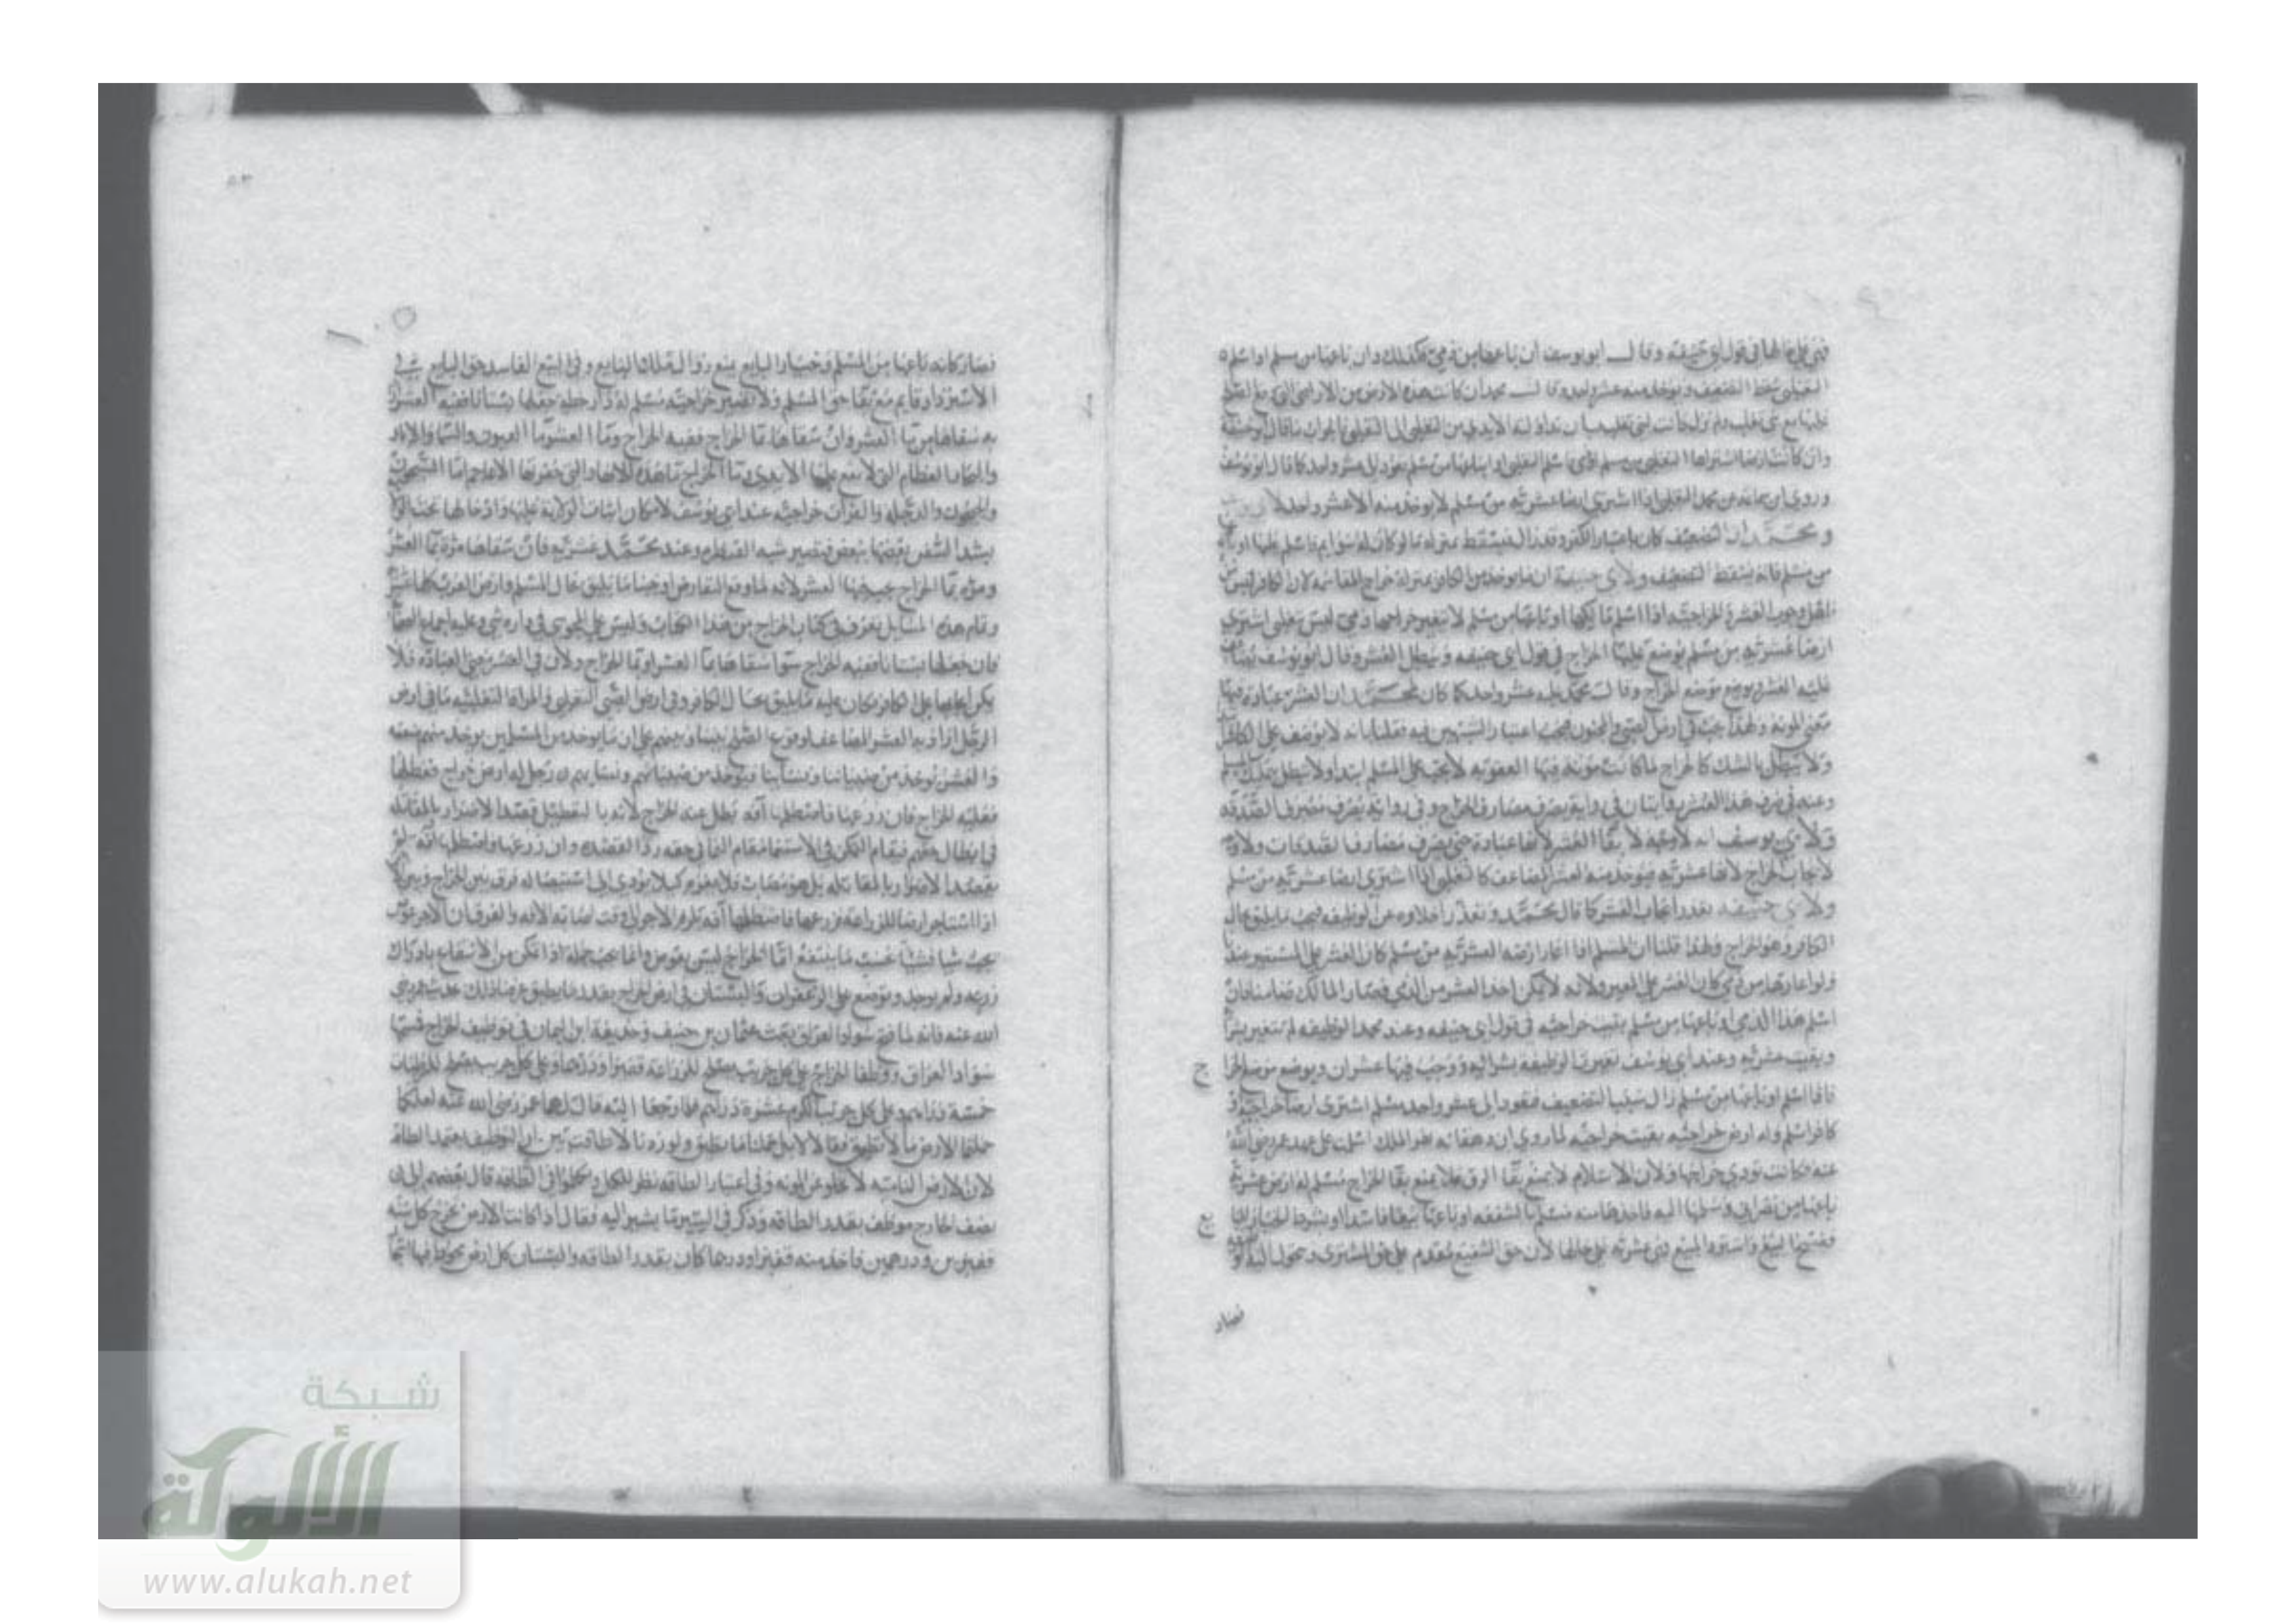 فهي على حالها في قول ابي حنيفة وقال ابو يوسف ان باعها من ذمي فكذلك وان باعها من مسلم او اسلم
التغلبي سقط التضعيف ويوخذ منه عشر واحد وقال محمد ان كانت هذه الارض من الاراضي التي وقع الصلح
عليها مع بني تغلب
وان كانت ارضا اشتراها التغلبي من مسلم او اسلم التغلبي او باعها من مسلم يعود الى عشر واحد كما قال ابو يوسف
وروى ابن سماعة عن محمد التغلبي اذا اشترى ارضا عشرية من مسلم لا يوخذ منه الا عشر واحد
ومحمد ان التضعيف كان باعتبار الكفر وقد زال فيسقط
من مسلم فانه يسقط التضعيف ولابي حنيفة ان ما يوخذ من الكافر بمنزلة خراج المقاسمة لان الكافر ليس
اهلا لوجوب العشر اذا اسلم مالكها او باعها من مسلم لا تتغير ذمي ليس بتغلبي اشترى
ارضا عشرية من مسلم يوضع عليها الخراج في قول ابي حنيفة ويبطل العشر وقال ابو يوسف
عليه العشر ويوضع موضع الخراج وقال محمد عليه عشر واحد كما كان لمحمد ان العشر عبادة فيها
معنى المونة ولهذا يجب في ارض الصبي والمجنون فيجب اعتبار الشبهين فيه فقلنا بانه لا يوظف على الكافر
ولا يبطل بالشك كالخراج لما كانت مونة فيها العقوبة لا يجب على المسلم ابتدا ولا يبطل
وعنه في صرف هذا العشر روايتان في رواية يصرف مصارف الخراج وفي رواية يصرف مصرف الصدقة
ولابي يوسف انه لا وجه لابقا العشر لانها عبادة حتى يصرف مصارف الصدقات ولا وجه
لايجاب الخراج لانها عشرية فيوخذ منه العشر المضاعف كالتغلبي اذا اشترى ارضا عشرية من مسلم
ولابي حنيفة تعذر ايجاب العشر كما قال محمد وتعذر اخلاوه عن الوظيفة فيجب ما يليق بحال
الكافر وهو الخراج ولهذا قلنا ان المسلم اذا اعار ارضه العشرية من مسلم كان العشر على المستعير عندنا
ولو اعارها من ذمي كان العشر على المعير ولانه لا يمكن اخذ العشر من الذمي فصار المالك ضامنا فان
اسلم هذا الذمي او باعها من مسلم بقيت خراجية في قول ابي حنيفة وعند محمد الوظيفة لم تتغير
وبقيت عشرية وعند ابي يوسف تغيرت الوظيفة بشرائه ووجب فيها عشران ويوضع موضع الخراج
فاذا اسلم او باعها من مسلم زال سبب التضعيف فيعود الى عشر واحد مسلم اشترى ارضا خراجية او
كافر اسلم وله ارض خراجية بقيت خراجية لما روي ان دهقانة نهر الملك اسلمت على عهد عمر رضي الله
عنه فكانت تودي خراجها ولان الاسلام لا يمنع بقا الرق فلا يمنع بقا الخراج مسلم له ارض عشرية
باعها من نصراني وسلمها اليه فاخذها منه مسلم بالشفعة او باعها بيعا فاسدا او بشرط الخيار
ففسخ البيع واسترد المبيع فهي عشرية على حالها لان حق الشفيع مقدم على حق المشتري وتحول اليه
فصار
ج
ع
فصار كانه باعها من المسلم وخيار البايع يمنع زوال ملك البايع وفي البيع الفاسد حق البايع في
الاسترداد قايم مع بقا حق المسلم ولا تصير خراجية مسلم له دار خطة جعلها بستانا ففيه العشر
ان سقاها من ما العشر وان سقاها بما الخراج ففيه الخراج وما العشر ما العيون والسما والابار
والبحار العظام التي لا يقع عليها الايدي وما الخراج ما هذه الانهار التي حفرتها الاعاجم اما السيحون
والجيحون والدجلة والفرات خراجية عند ابي يوسف لامكان اثبات الولاية عليها وادخالها تحت
بشد السفن بعضها ببعض فتصير شبه القنطرة وعند محمد عشرية فان سقاها مرة بما العشر
ومرة بما الخراج العشر لانه لما وقع التعارض اوجبنا ما يليق بحال المسلم وارض العرب كلها عشرية
وتمام هذه المسايل يعرف في كتاب الخراج من هذا الكتاب وليس على المجوسي في داره شي وعليه اجماع الصحابة
فان جعلها بستانا ففيه الخراج سوا سقاها بما العشر او بما الخراج ولان في العشر معنى العبادة فلا
يمكن ايجابها على الكافر فكان عليه ما يليق بحال الكافر وفي ارض الصبي التغلبي والمراة التغلبية ما في ارض
الرجل اراد به العشر المضاعف لوقوع الصلح بيننا وبينهم على ان ما يوخذ من المسلمين يوخذ منهم ضعفه
والعشر يوخذ من صبياننا ونسائنا فيوخذ من صبيانهم ونسايهم رجل له ارض خراج فعطلها
فعليه الخراج فان زرعها فاصطلمها آفة بطل عنه الخراج لانه بالتعطيل قصد الاضرار بالمقاتلة
في ابطال حقهم فيقام التمكن في الاستنما مقام النما في حقه ردا لقصده وان زرعها فاصطلمه آفة لم
يقصد الاضرار بالمقاتلة بل هو مصاب فلا يغرم كيلا يودي الى استيصاله فرق بين الخراج وبين
اذا استاجر ارضا للزراعة فزرعها فاصطلمها آفة يلزمه الاجر الى وقت اصابة الافة والفرق ان الاجر عوض
يجب شيا فشيا بحسب ما ينتفع اما الخراج ليس بعوض وانما يجب جملة اذا تمكن من الانتفاع بادراك
زرعه ولم يوجد ويوضع على الزعفران والبستان في ارض الخراج بقدر ما يطيق عرفنا ذلك بحديث عمر رضي
الله عنه فانه لما فتح سواد العراق بعث عثمان بن حنيف وحذيفة ابن اليمان في توظيف الخراج فمسحا
سواد العراق ووظفا الخراج على كل جريب يصلح للزراعة قفيزا ودرهما وعلى كل جريب يصلح للرطاب
خمسة دراهم وعلى كل جريب الكرم عشرة دراهم فلما رجعا اليه قال لهما عمر رضي الله عنه لعلكما
حملتما الارض ما لا تطيق فقالا لا بل حملناها ما تطيق ولو زدنا لاطاقت بين ان التوظيف يعتمد الطاقة
لان الارض النامية لا تخلو عن المونة وفي اعتبار الطاقة نظر للكل وتكلموا في الطاقة قال بعضهم الى ان
نصف الخارج موظف بقدر الطاقة وذكر في السير ما يشير اليه فقال اذا كانت الارض تخرج كل سنة
قفيزين ودرهمين فاخذ منه قفيزا ودرهما كان بقدر الطاقة والبستان كل ارض يحوطها
شبكة
الألوكة
www.alukah.net